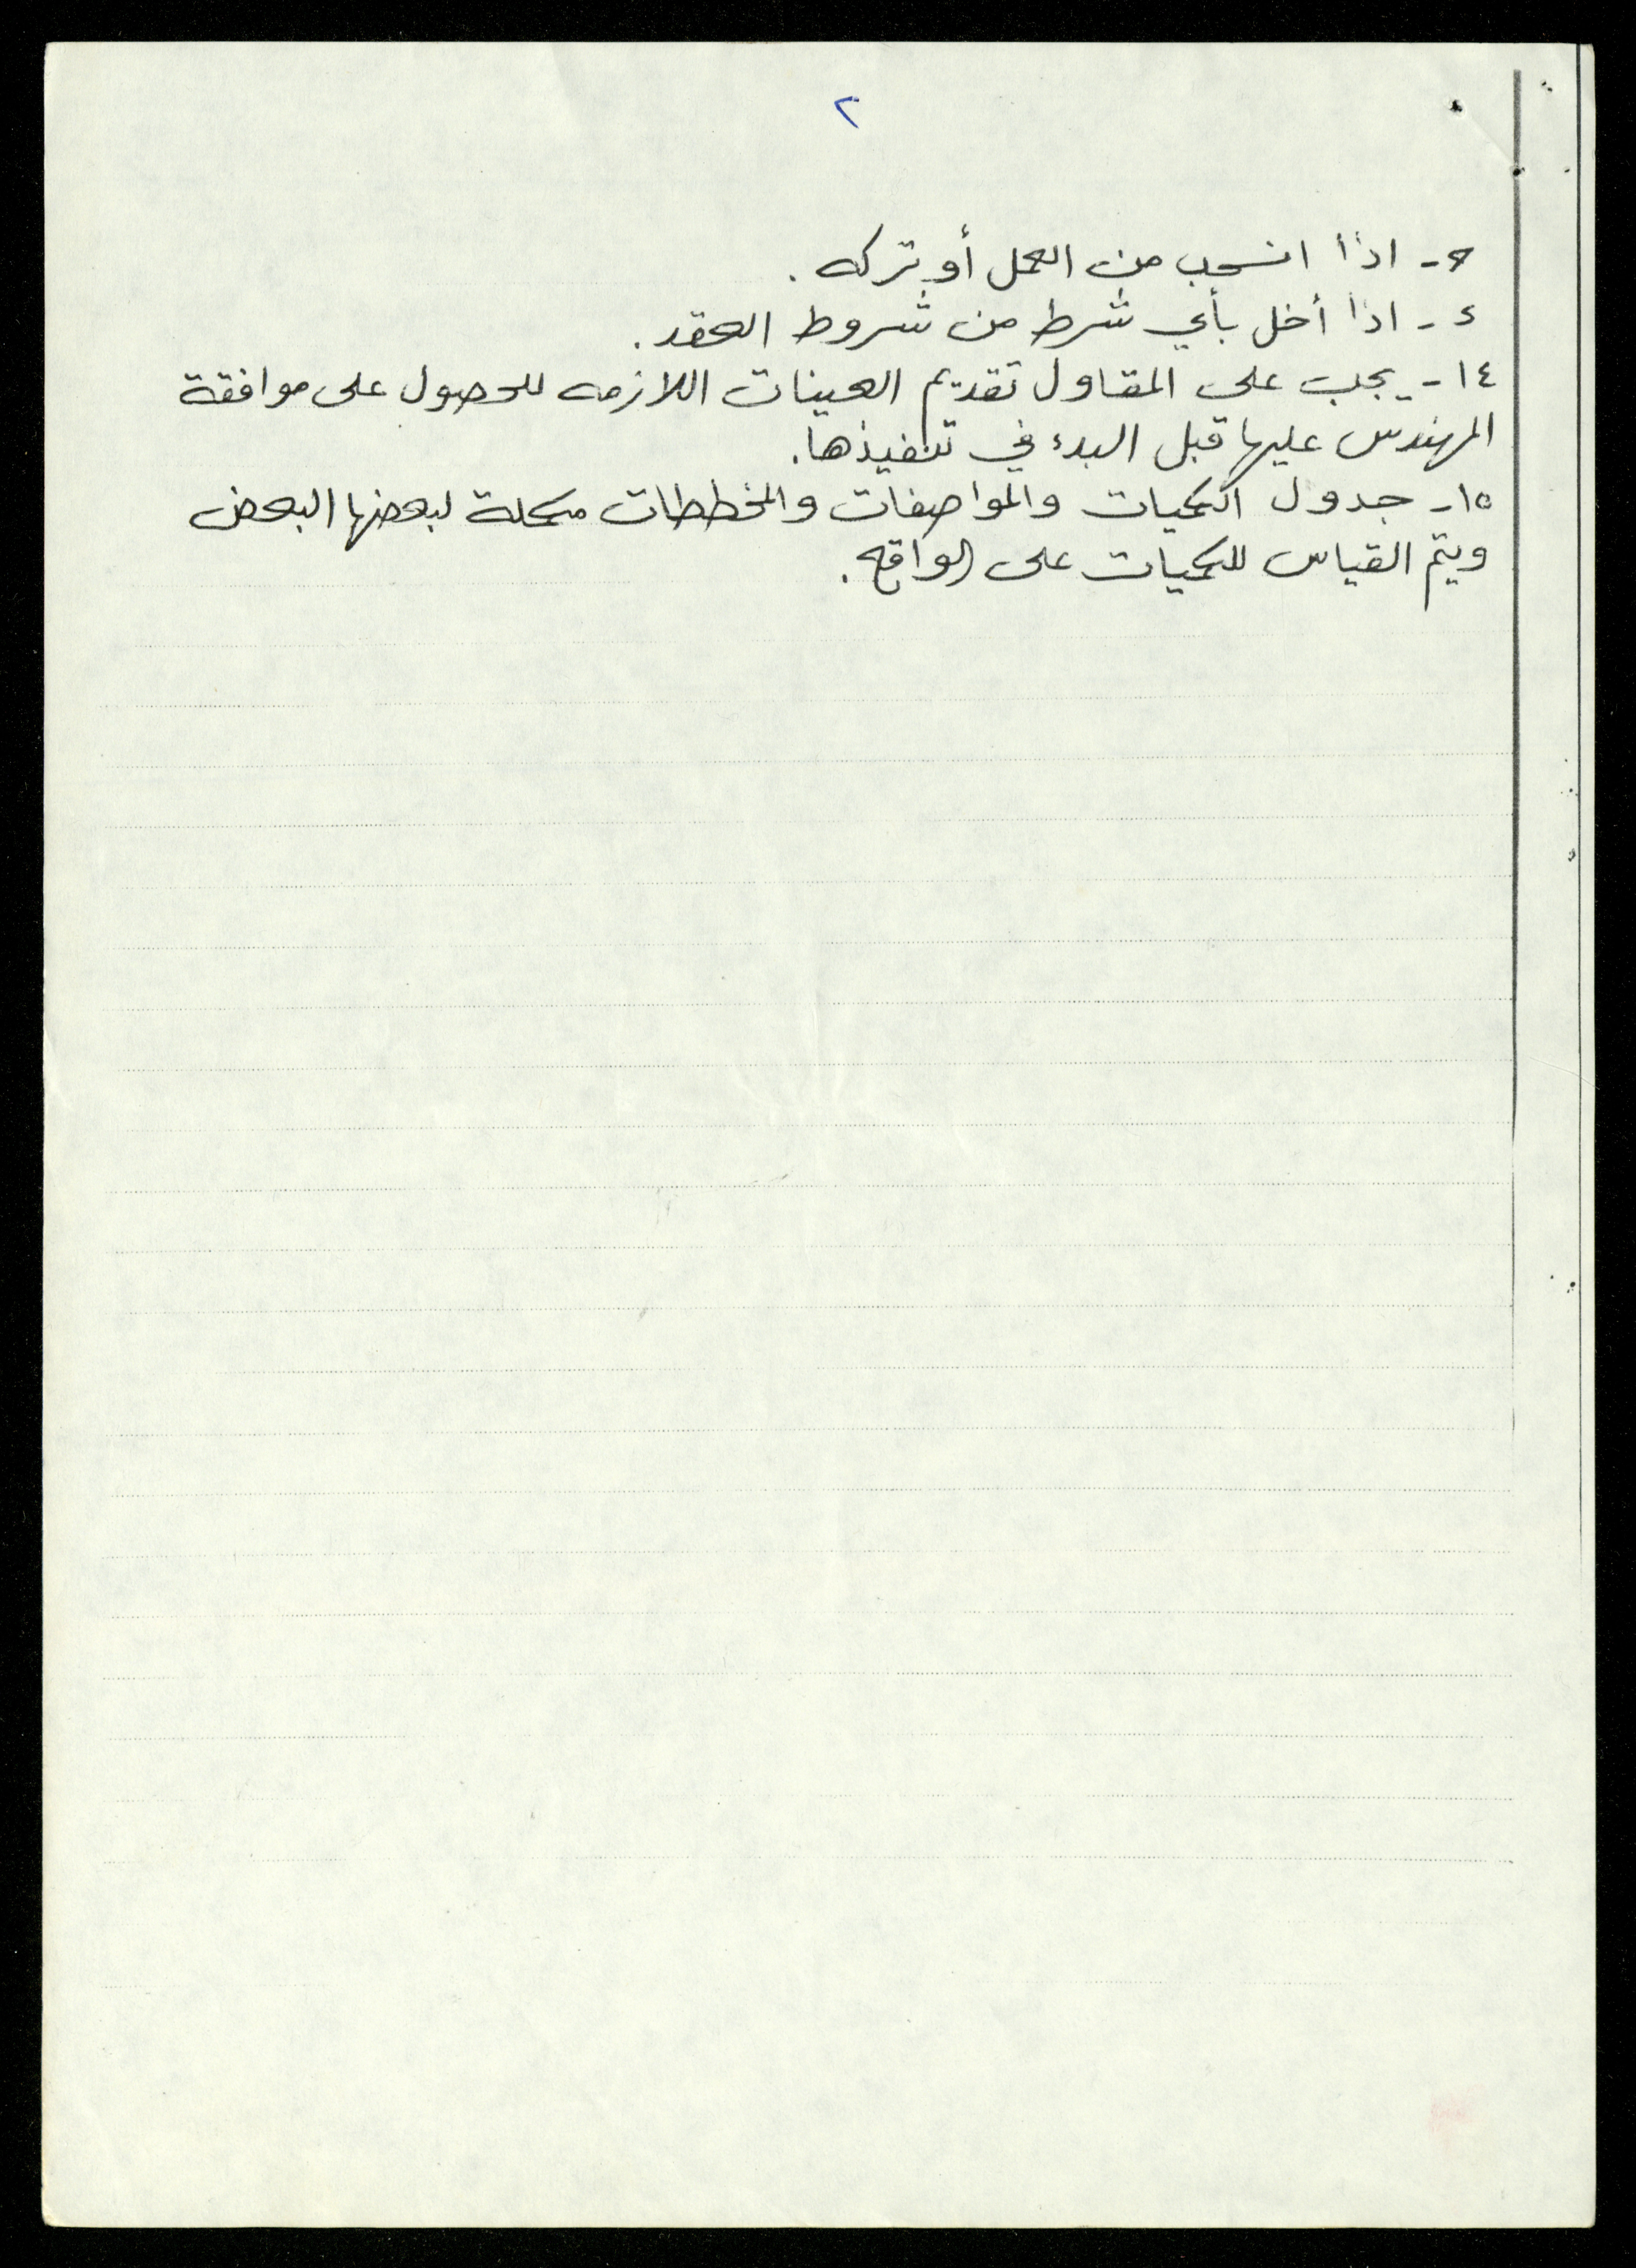 ٢
ه- اذا انسحب من العمل أو تركه.
و- اذا أخل بأي شرط من شروط العقد.
١٤- يجب على المقاول تقديم العينات اللازمه للحصول على موافقة
المهندس عليها قبل البدء في تنفيذها.
١٥- جدول الكميات والمواصفات والمخططات مكملة لبعضها البعض
ويتم القياس للكميات على الواقع.